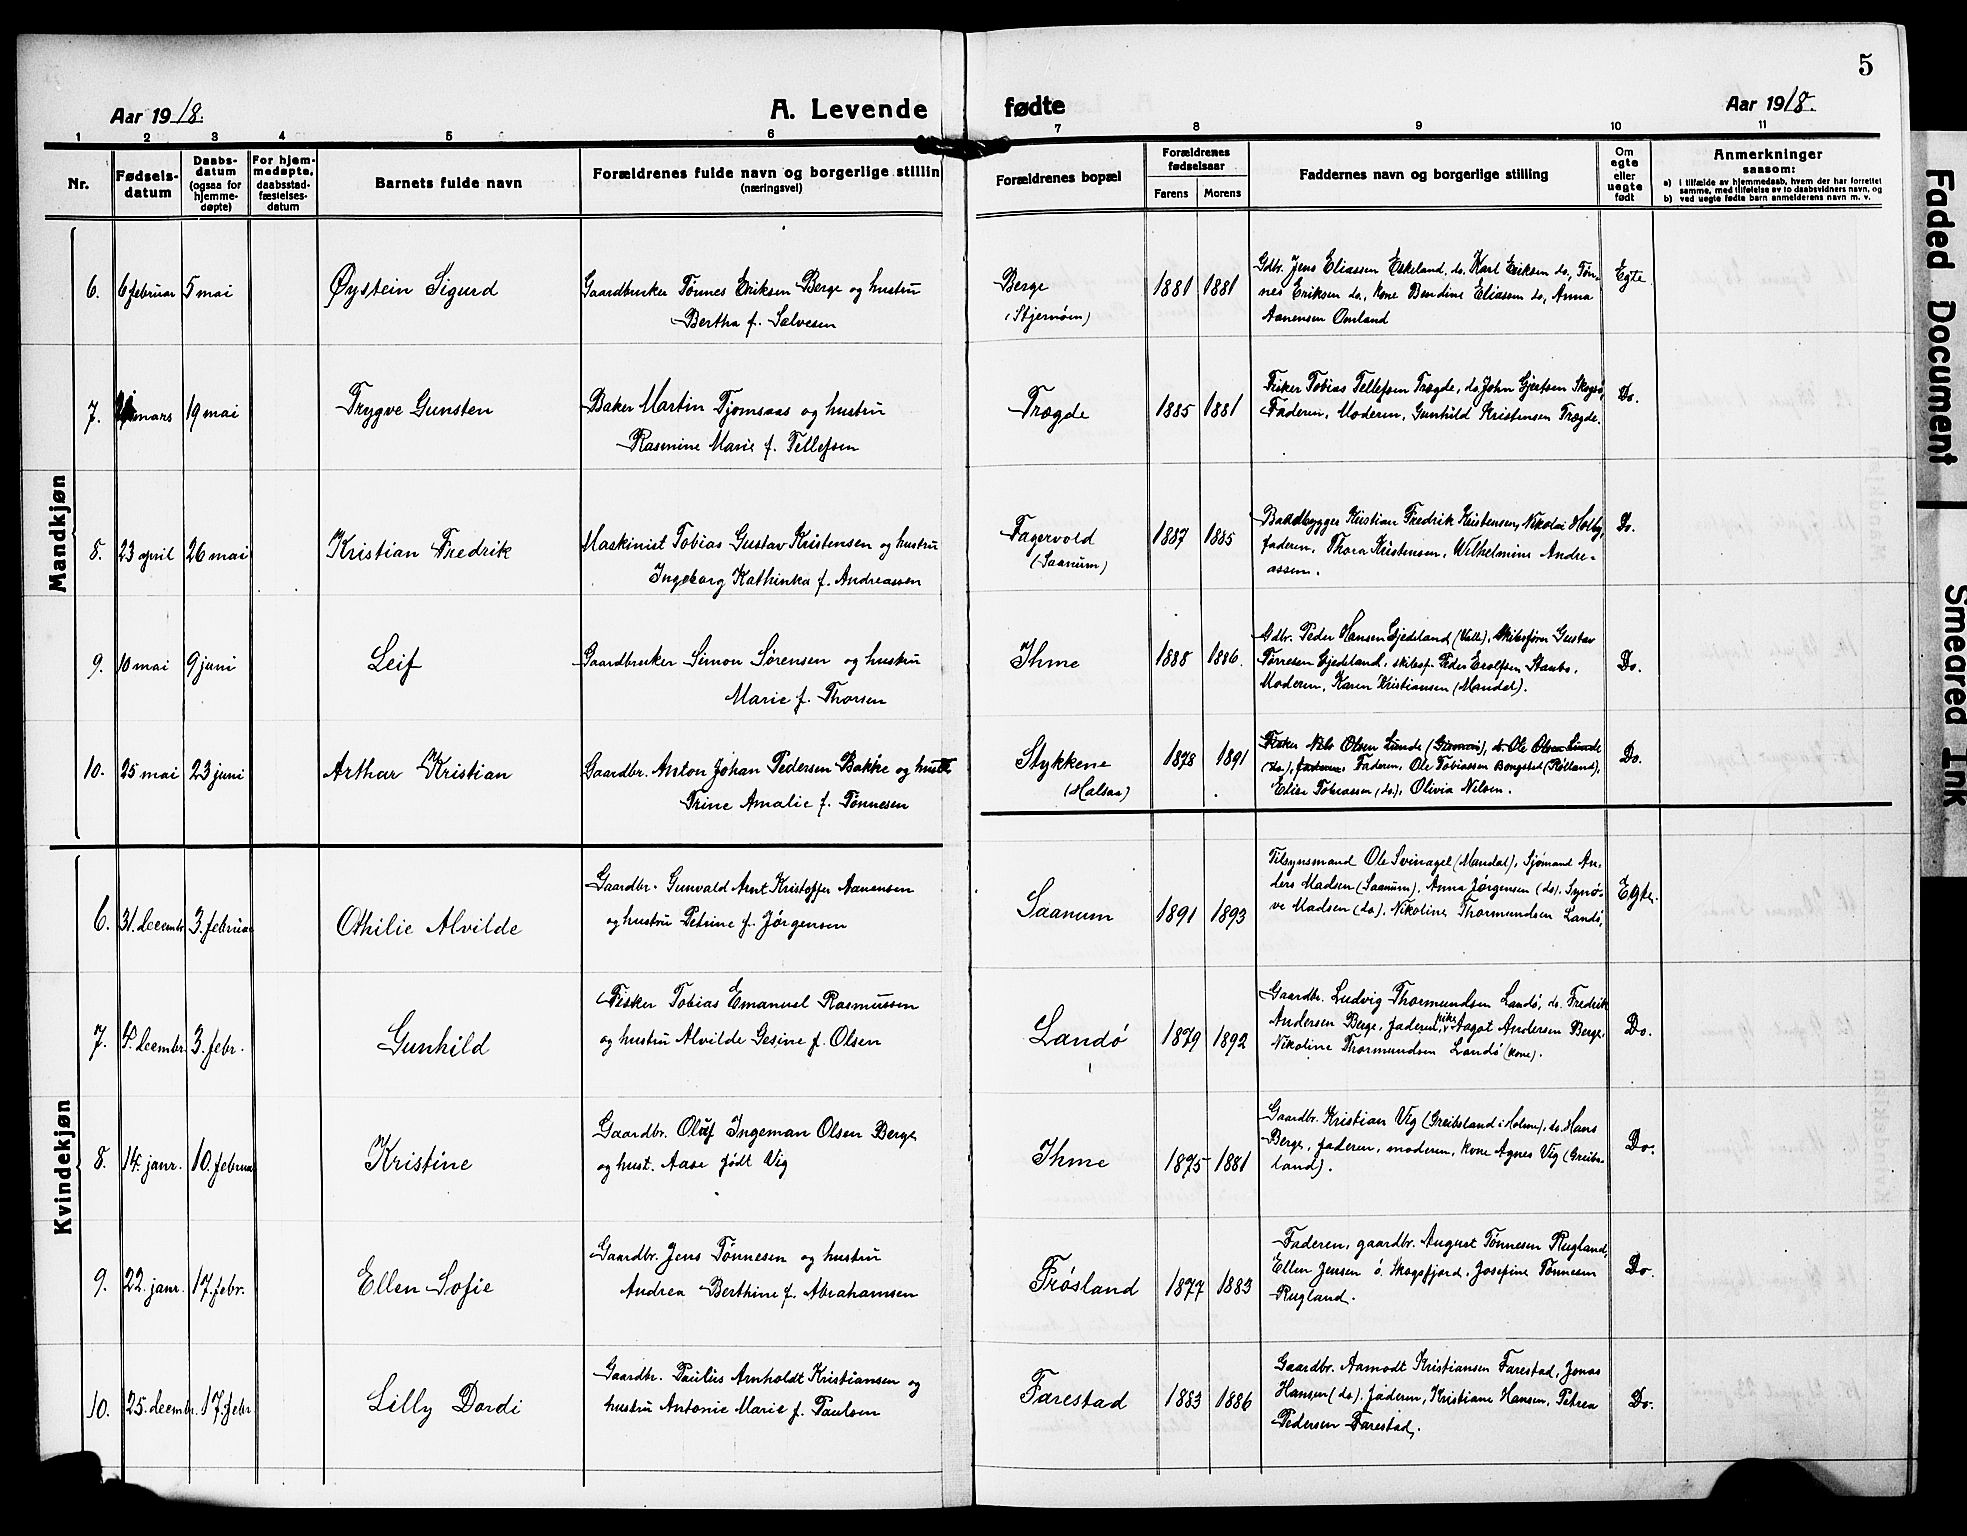 5
Aar 1918.
A. Levende
fødte
Aar 1918.
1 2 3 4 5 6 7 8 9 10 11
Nr.
Fødselsdatum
Daabsdatum (ogsaa for hjemmedøpte)
For hjemmedøpte, daabsstadfæstelsesdatum
Barnets fulde navn
Forældrenes fulde navn og borgerlige stillin
(næringsvei)
Forældrenes bopæl
Forældrenes fødselsaar
Farens Morens
Faddernes navn og borgerlige stilling
Om egte eller uegte født
Anmerkninger
saasom:
a) i tilfælde av hjemmedaab, hvem der har forrettet
samme, med tilføielse av to daabsvidners navn, og
b) ved uegte fødte barn anmelderens navn m. v.
Mandkjøn
6. 6 februar 5 mai Øystein Sigurd
Gaardbruker Tønnes Eriksen Berge og hustru
Bertha f. Salvesen
Berge
(Stjernøm)
1881 1881
Gdbr. Jens Eliassen Eskeland, do. Karl Eriksen do, Tøn-
nes Eriksen do., kone Bendine Eliassen do, Anna
Aanensen Omland
Egte
7. mars 19 mai Trygve Gunsten
Baker Martin Tjomsaas og hustru
Rasmine Marie f. Tellefsen
Trægde
1885 1881
Fisker Tobias Tellefsen Trægde, do. John Gjertsen Skogsø,
Faderen, Moderen, Gunhild Kristensen Trægde.
Do.
8. 23 april 26 mai Kristian Fredrik
Maskinist Tobias Gustav Kristensen og hustru
Ingeborg Kathinka f. Andreassen
Fagervold
(Saanum)
1887 1885
Baadbygger Kristian Fredrik Kristensen, Nikolai Holby,
faderen, Thora Kristensen, Wilhelmine Andre-
assen.
Do.
9. 10 mai 9 juni Leif
Gaardbruker Simon Sørensen og hustru
Marie f. Thorsen
Ihme
1888 1886.
Gdbr. Peder Hansen Gjedsland (Valle), skibsførn Gustav
Tørresen Gjedsland, skibsf. Peder Erolfsen Stausbo,
Moderen, Karen Kristiansen (Mandal).
Do.
10. 25 mai 23 juni Arthur Kristian
Gaardbr. Anton Johan Pedersen Bakke og hustr
Trine Amalie f. Tønnesen
Stykkene
(Halsaa)
1878 1891
Fisker Nils Olsen Lunde, do. Ole Olsen Lunde
(do.), faderen Faderen, Ole Tobiassen Bongstad (Rølland),
Elise Tobiassen (do.), Olivia Nilsen.
Do.
Kvindekjøn
6. 31. decembr 3. februar Othilie Alvilde
Gaardbr. Gunvald Arnt Kristoffer Aanensen
og hustru Petrine f. Jørgensen
Saanum
1891 1893
Tilsynsmand Ole Svinagel (Mandal), Sjømand An-
ders Madsen (Saanum), Anna Jørgensen (do). Synø-
ve Madsen (do). Nikoline Thormundsen Landø,
Egte.
7. 4. decembr. 3. febr. Gunhild
Fisker Tobias Emanuel Rasmussen
og hustru Alvilde Gesine f. Olsen
Landø
1879 1892
Gaardbr. Ludvig Thormundsen Landø, do. Fredrik
Andersen Berge, faderen, pike Aagot Andersen Berge,
Nikoline Thormundsen Landø (kone).
Do.
8. 14. janr. 10. februar Kristine
Gaardbr. Oluf Ingeman Olsen Berge
og hust. Aase født Vig
Ihme
1875 1881
Gaardbr. Kristian Vig (Greibsland i Holme), do. Hans
Berge, faderen, moderen, kone Agnes Vig (Greibs-
land).
Do.
9. 22. janr. 17. febr. Ellen Sofie
Gaardbr. Jens Tønnesen og hustru
Andrea Berthine f. Abrahamsen
Frøsland
1877 1883
Faderen, gaardbr. August Tønnesen Rugland,
Ellen Jensen ö. Skogsfjord, Josefine Tønnesen
Rugland.
Do.
10. 25. decembr. 17. febr Lilly Dordi
Gaardbr. Paulus Arnholdt Kristiansen og
hustru Antonie Marie f. Paulsen
Farestad
1883 1886
Gaardbr. Aamodt Kristiansen Farestad, Jonas
Hansen (do). faderen, Kristiane Hansen, Petrea
Pedersen Farestad,
Do.
Faded Document
Smeared Ink